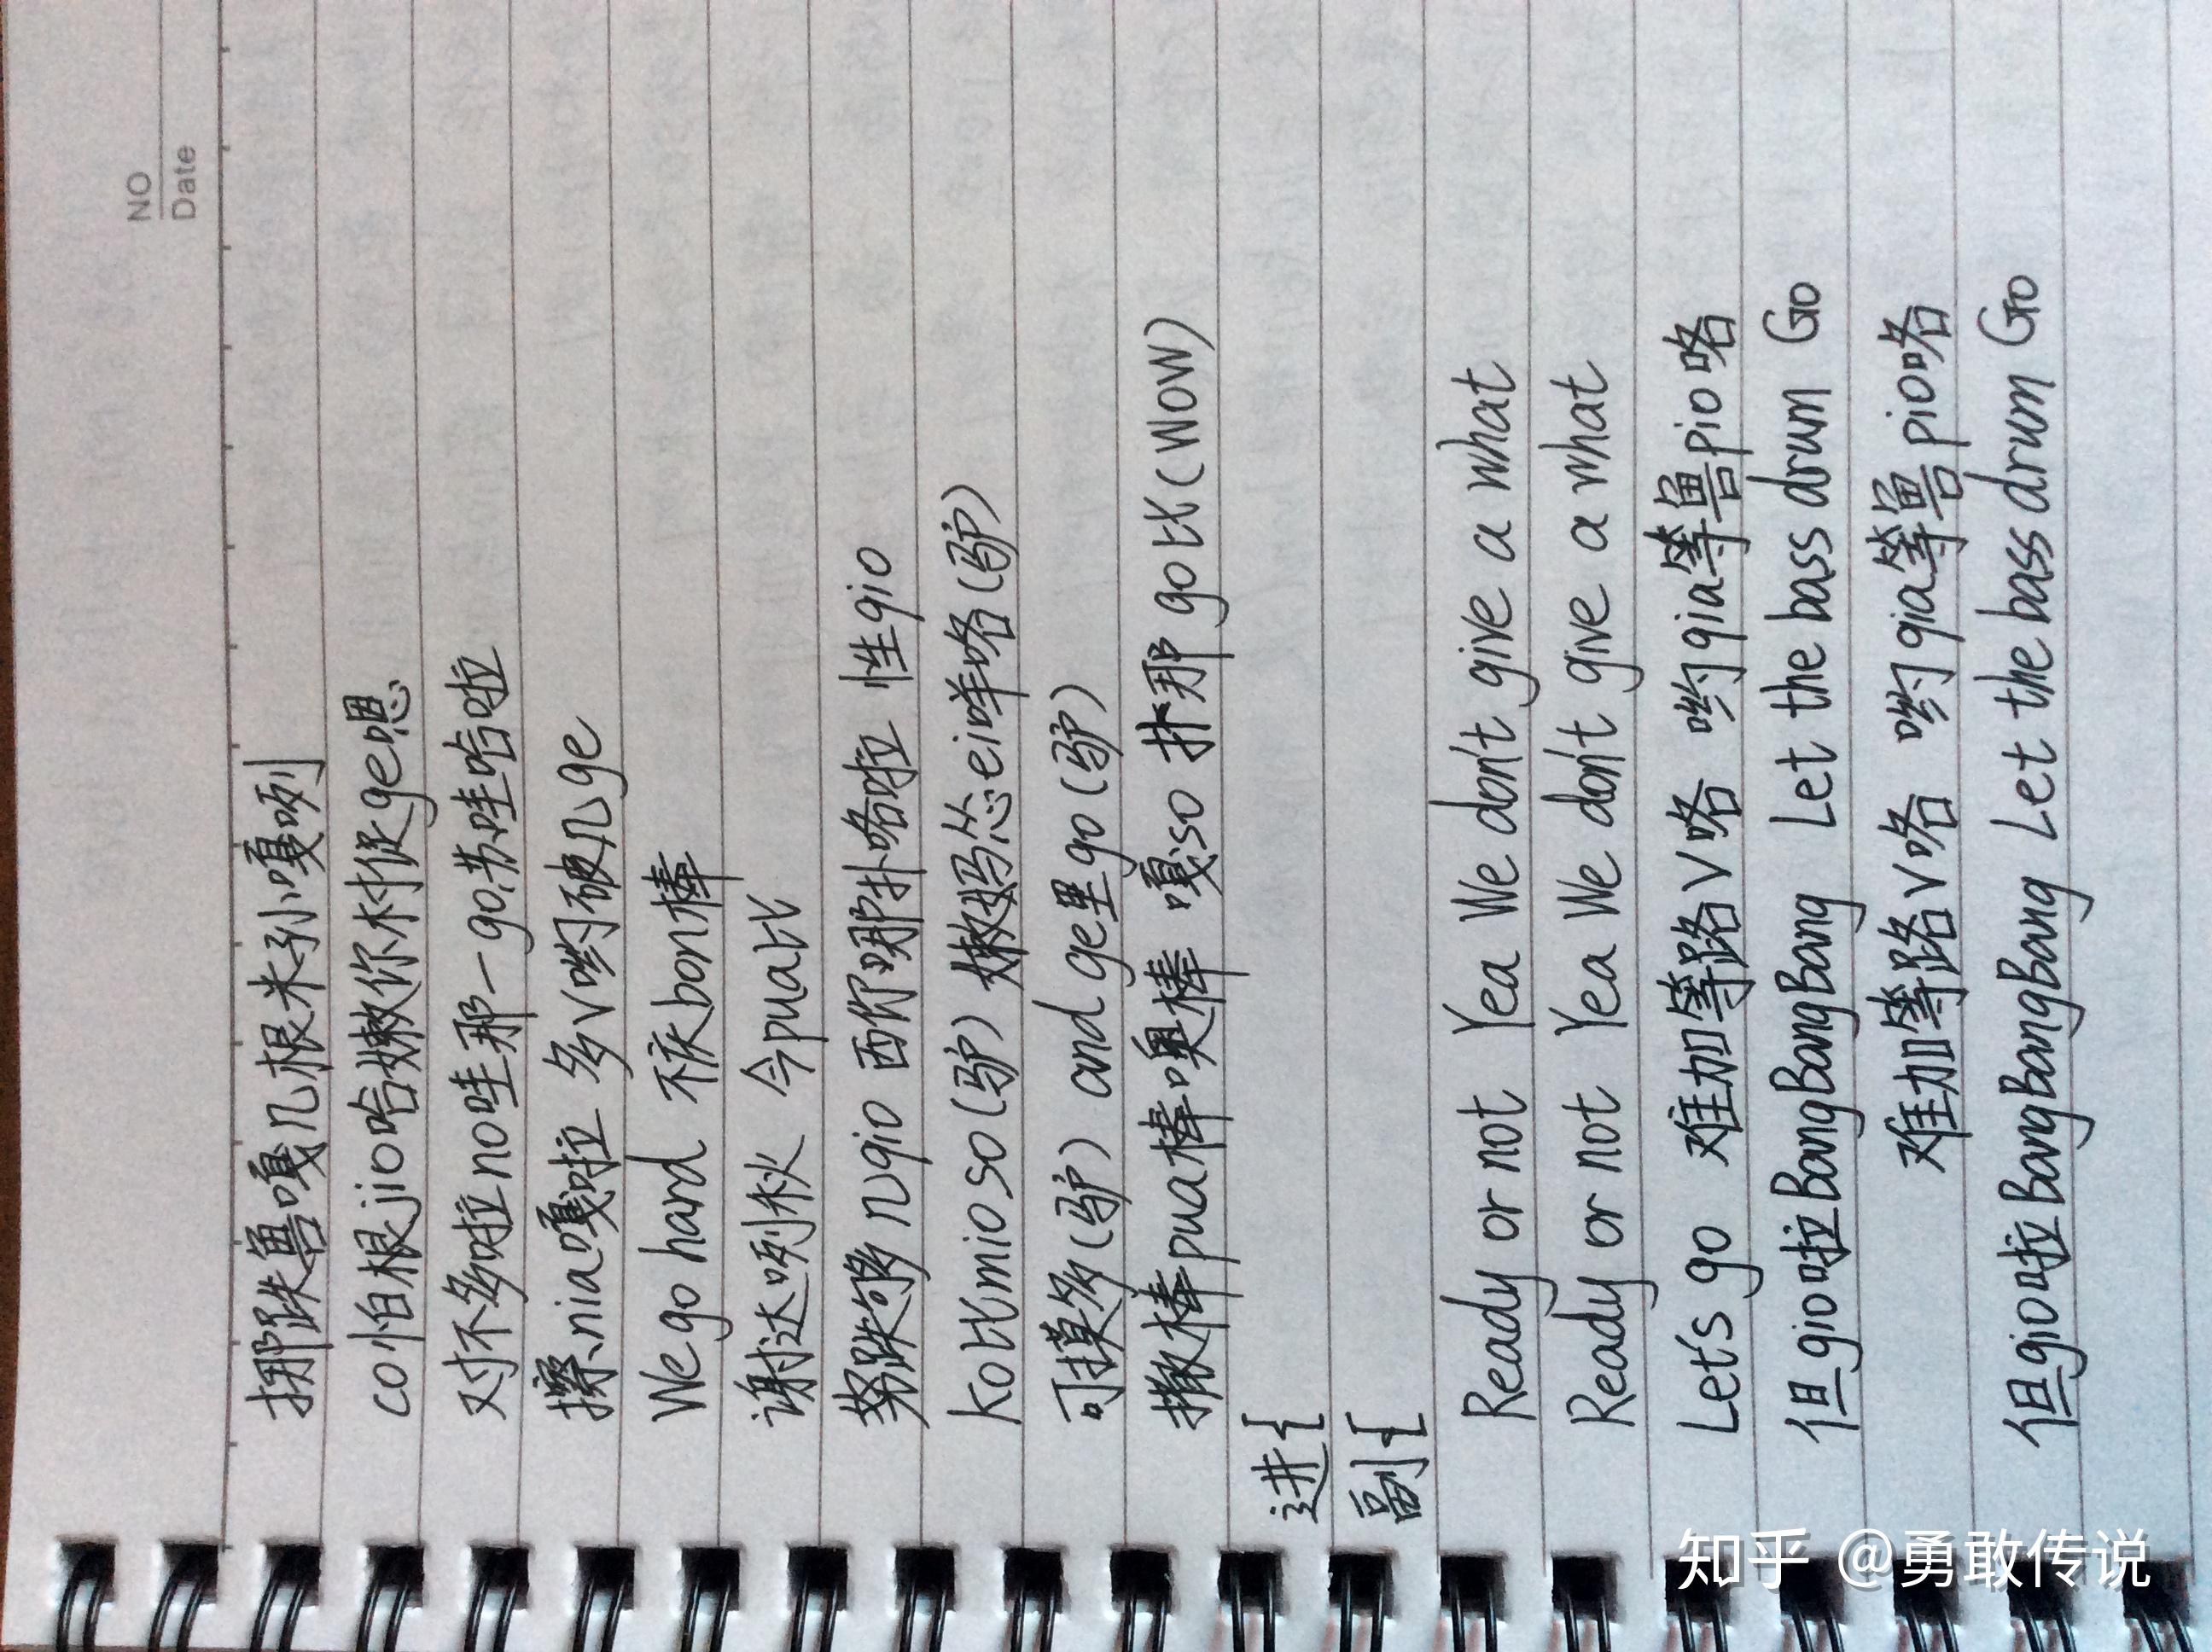 NO
Date
挪跌鲁嘎几根米孙嘎咧
co怕根jio哈嫩你村促ge嗯
对不多啦no哇那一go苏哇哈啦
擦nia嘎啦 多V哟破几ge
We go hard 不灰bon棒
谢达咧秋 今pua比
努跌够 几gio 西你哪扑咯啦 性gio
ko比mio so(驴) 嫩妈怂ei咩咯(驴)
可摸多(驴) and ge里go(驴)
撒棒pua棒噢棒 嘎so 扑那 go比(Wow)
进{
副{
Ready or not Yea We don't give a what
Ready or not Yea We don't give a what
Let's go 难加等路V咯 哟gia等鲁pio咯
但gio啦BangBangBang Let the bass drum Go
难加等路V咯 哟gia等鲁pio咯
但gio啦BangBangBang Let the bass drum Go
知乎 @勇敢传说